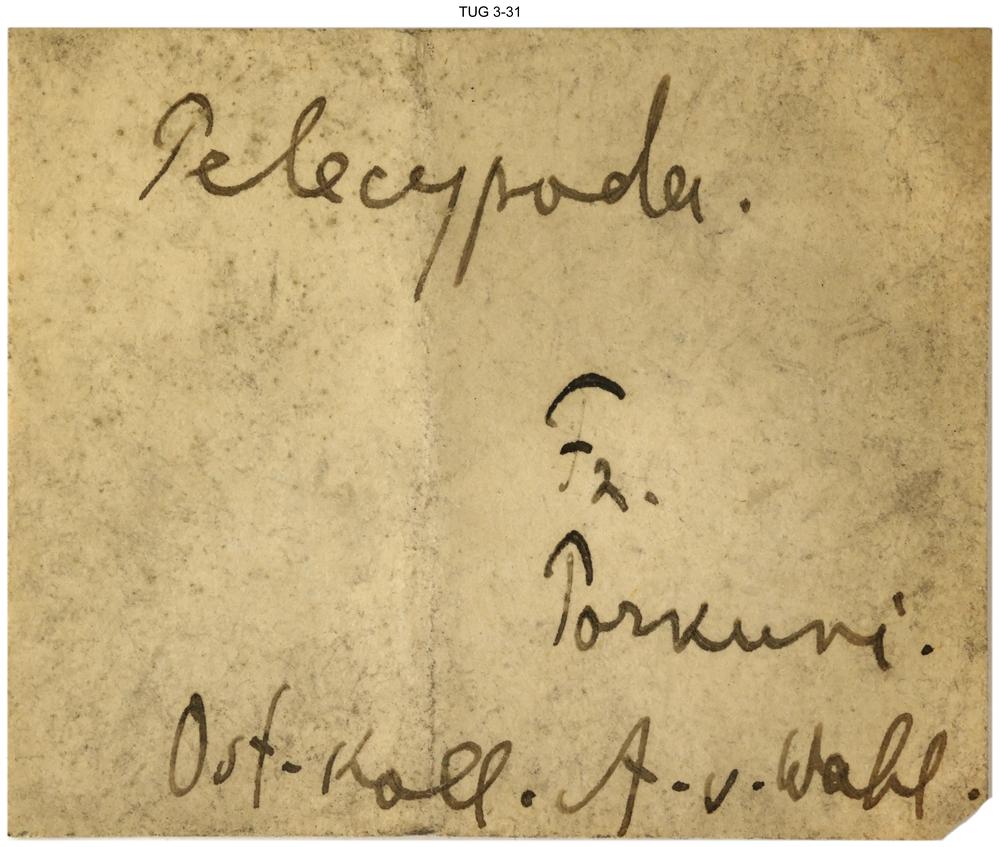 TUG 3-31
Pelecypoda.
F2.
Porkuni.
Ost. koll. A. v. Wahl.